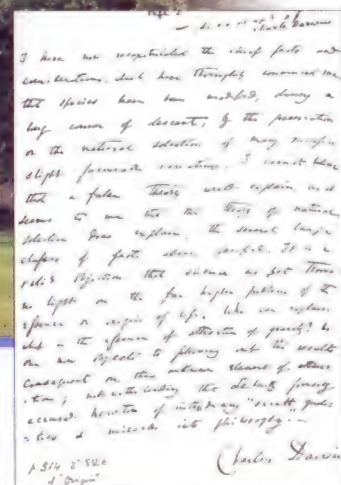 I have now recapitulated the chief facts and
considerations which have thoroughly convinced me
that species have been modified, during a
long course of descent, by the preservation
or the natural selection of many successive
slight favourable variations. I cannot believe
that a false Theory would explain, as it
seems to me that the Theory of natural
selection does explain, the several large
classes of facts above specified. It is no
valid objection that science as yet throws
no light on the far higher problem of the
essence or origin of life. Who can explain
what is the essence of attraction of gravity? No
one now objects to following out the results
consequent on this unknown element of attrac-
-tion; notwithstanding that Leibnitz formerly
accused Newton of introducing "occult quali-
-ties & miracles into philosophy".—
Charles Darwin
of "Origin"